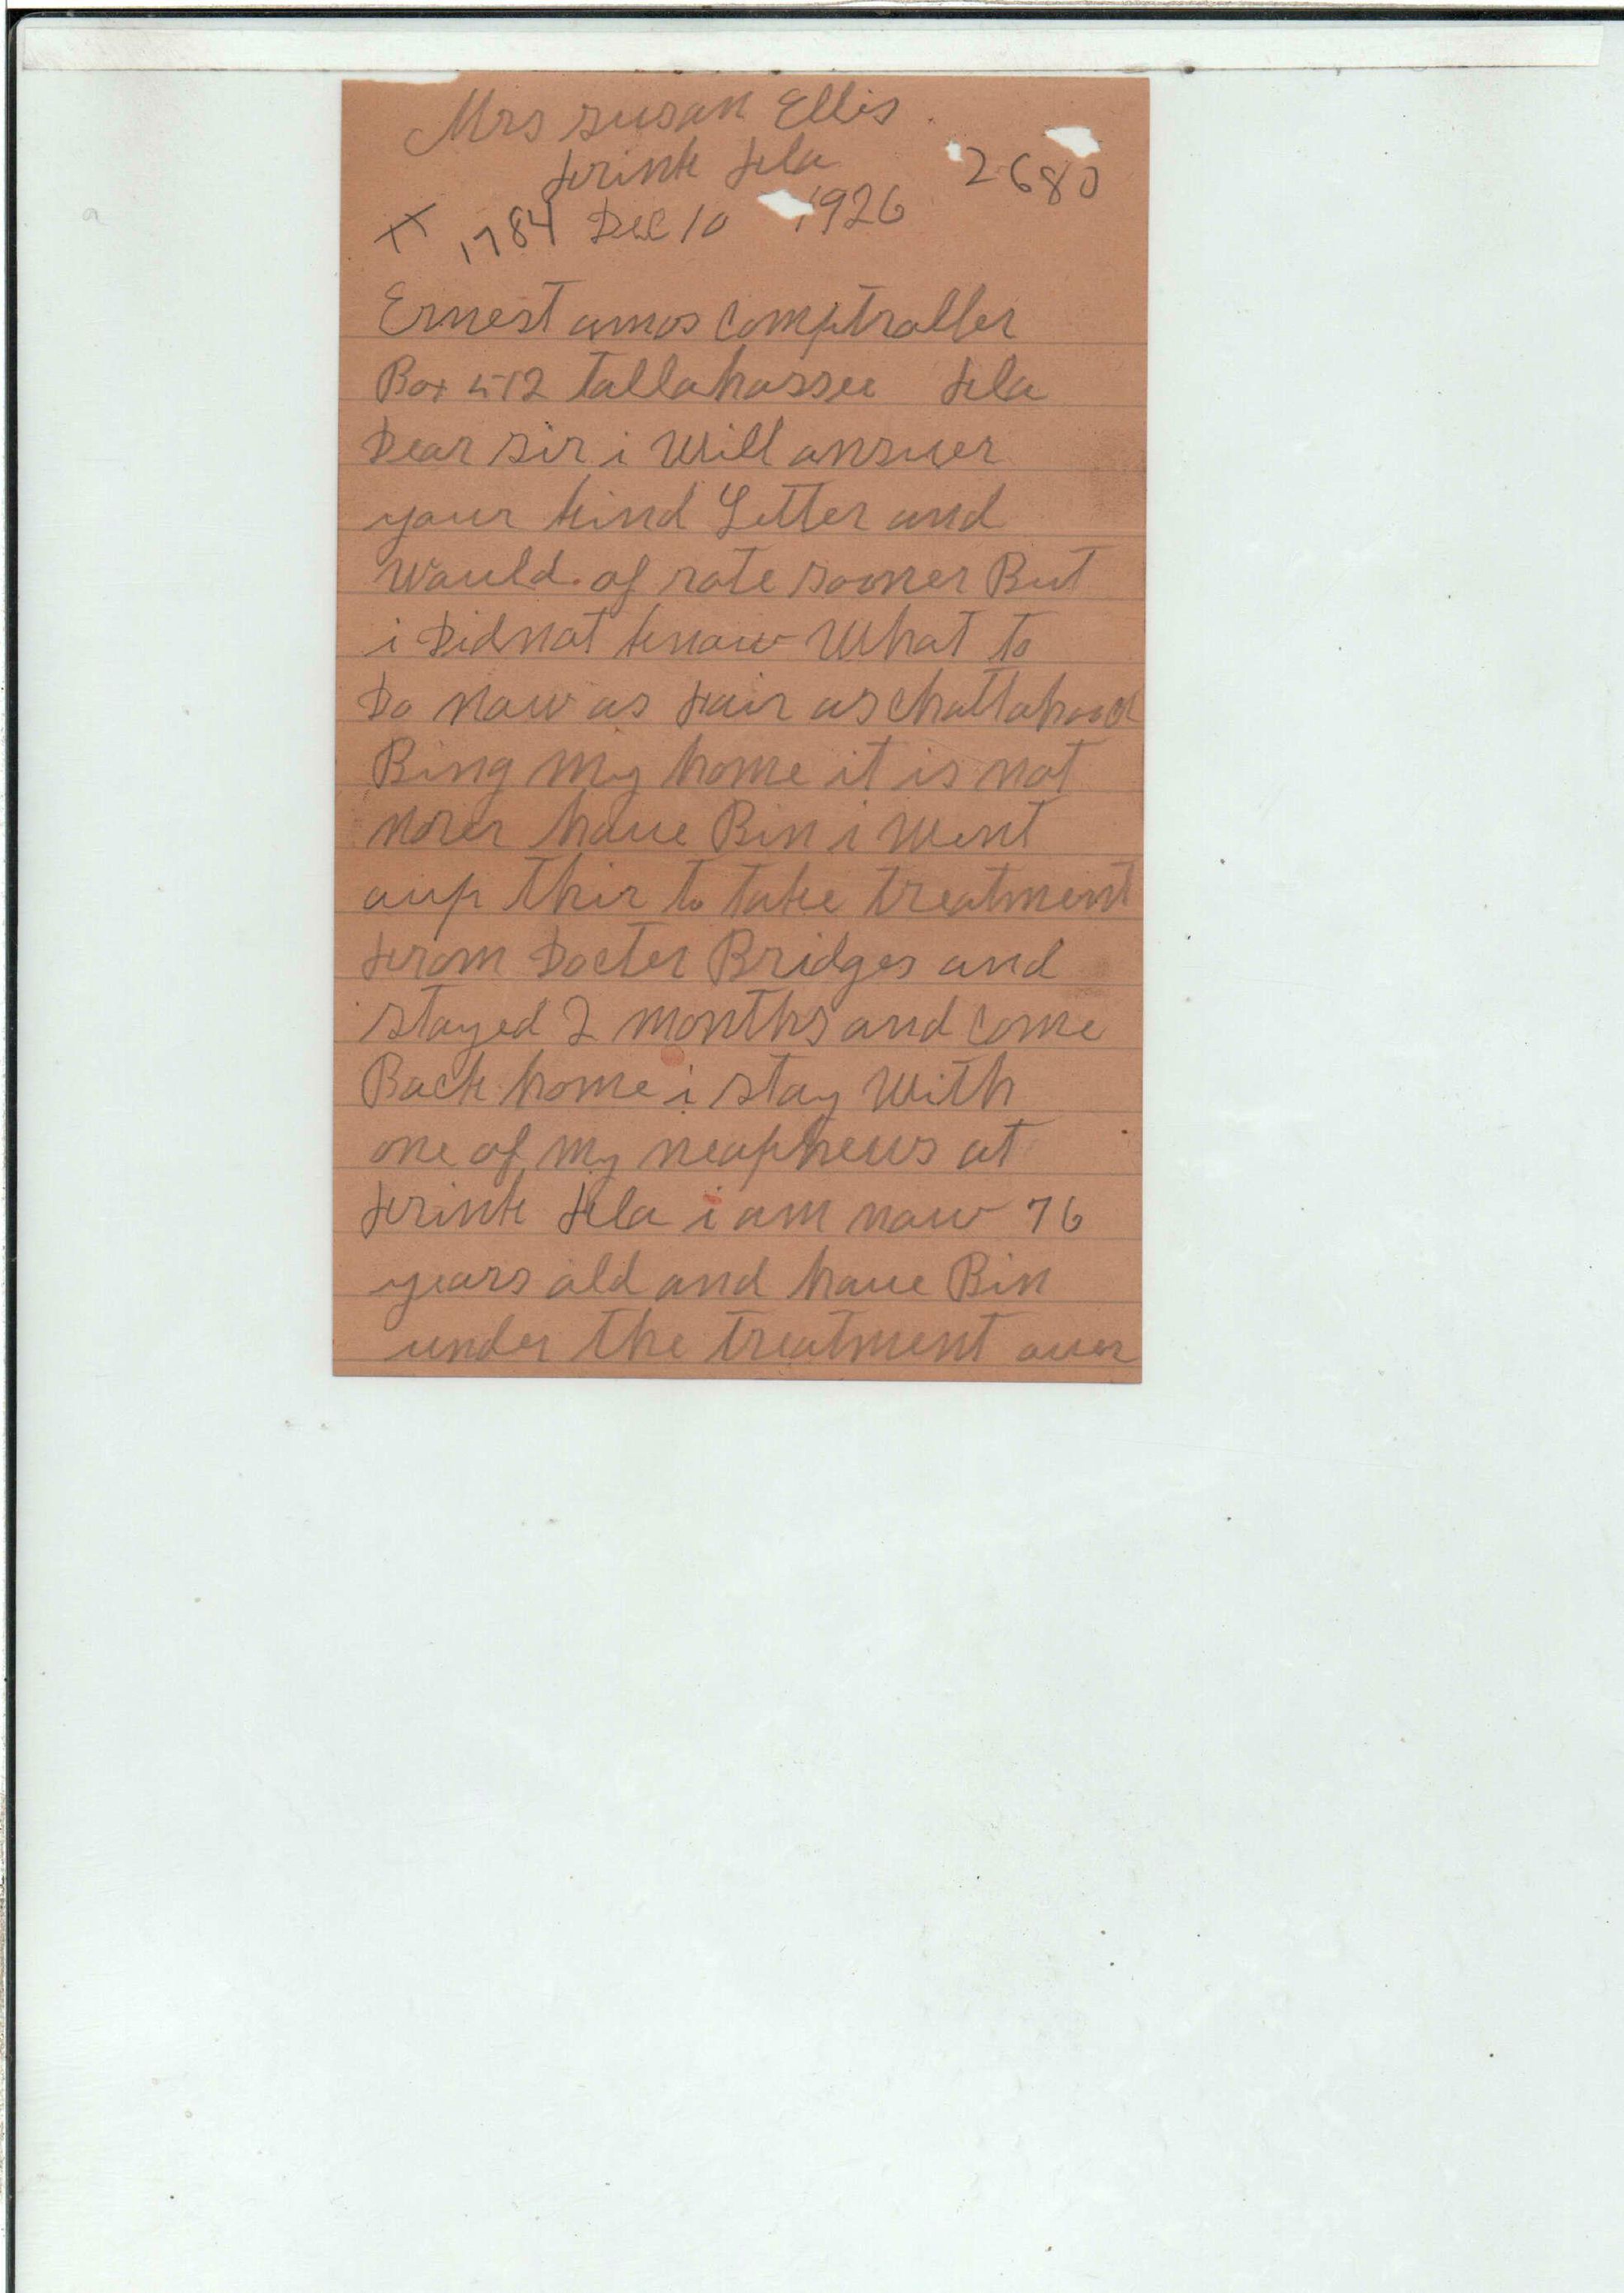 Mrs susan Ellis
frink fla
2680
1784 Dec 10 1926
Ernest amos comptroller
Box 412 tallahassee fla
Dear sir i Will answer
your kind Letter and
Would of rote sooner But
i Did not know What to
Do now as fair as chattahooch
Bing my home it is not
norer have Bin i Went
aup thir to take treatment
from Docter Bridges and
stayed 2 months and come
Back home i stay With
one of my neaphews at
frink fla i am now 76
years old and have Bin
under the treatment over